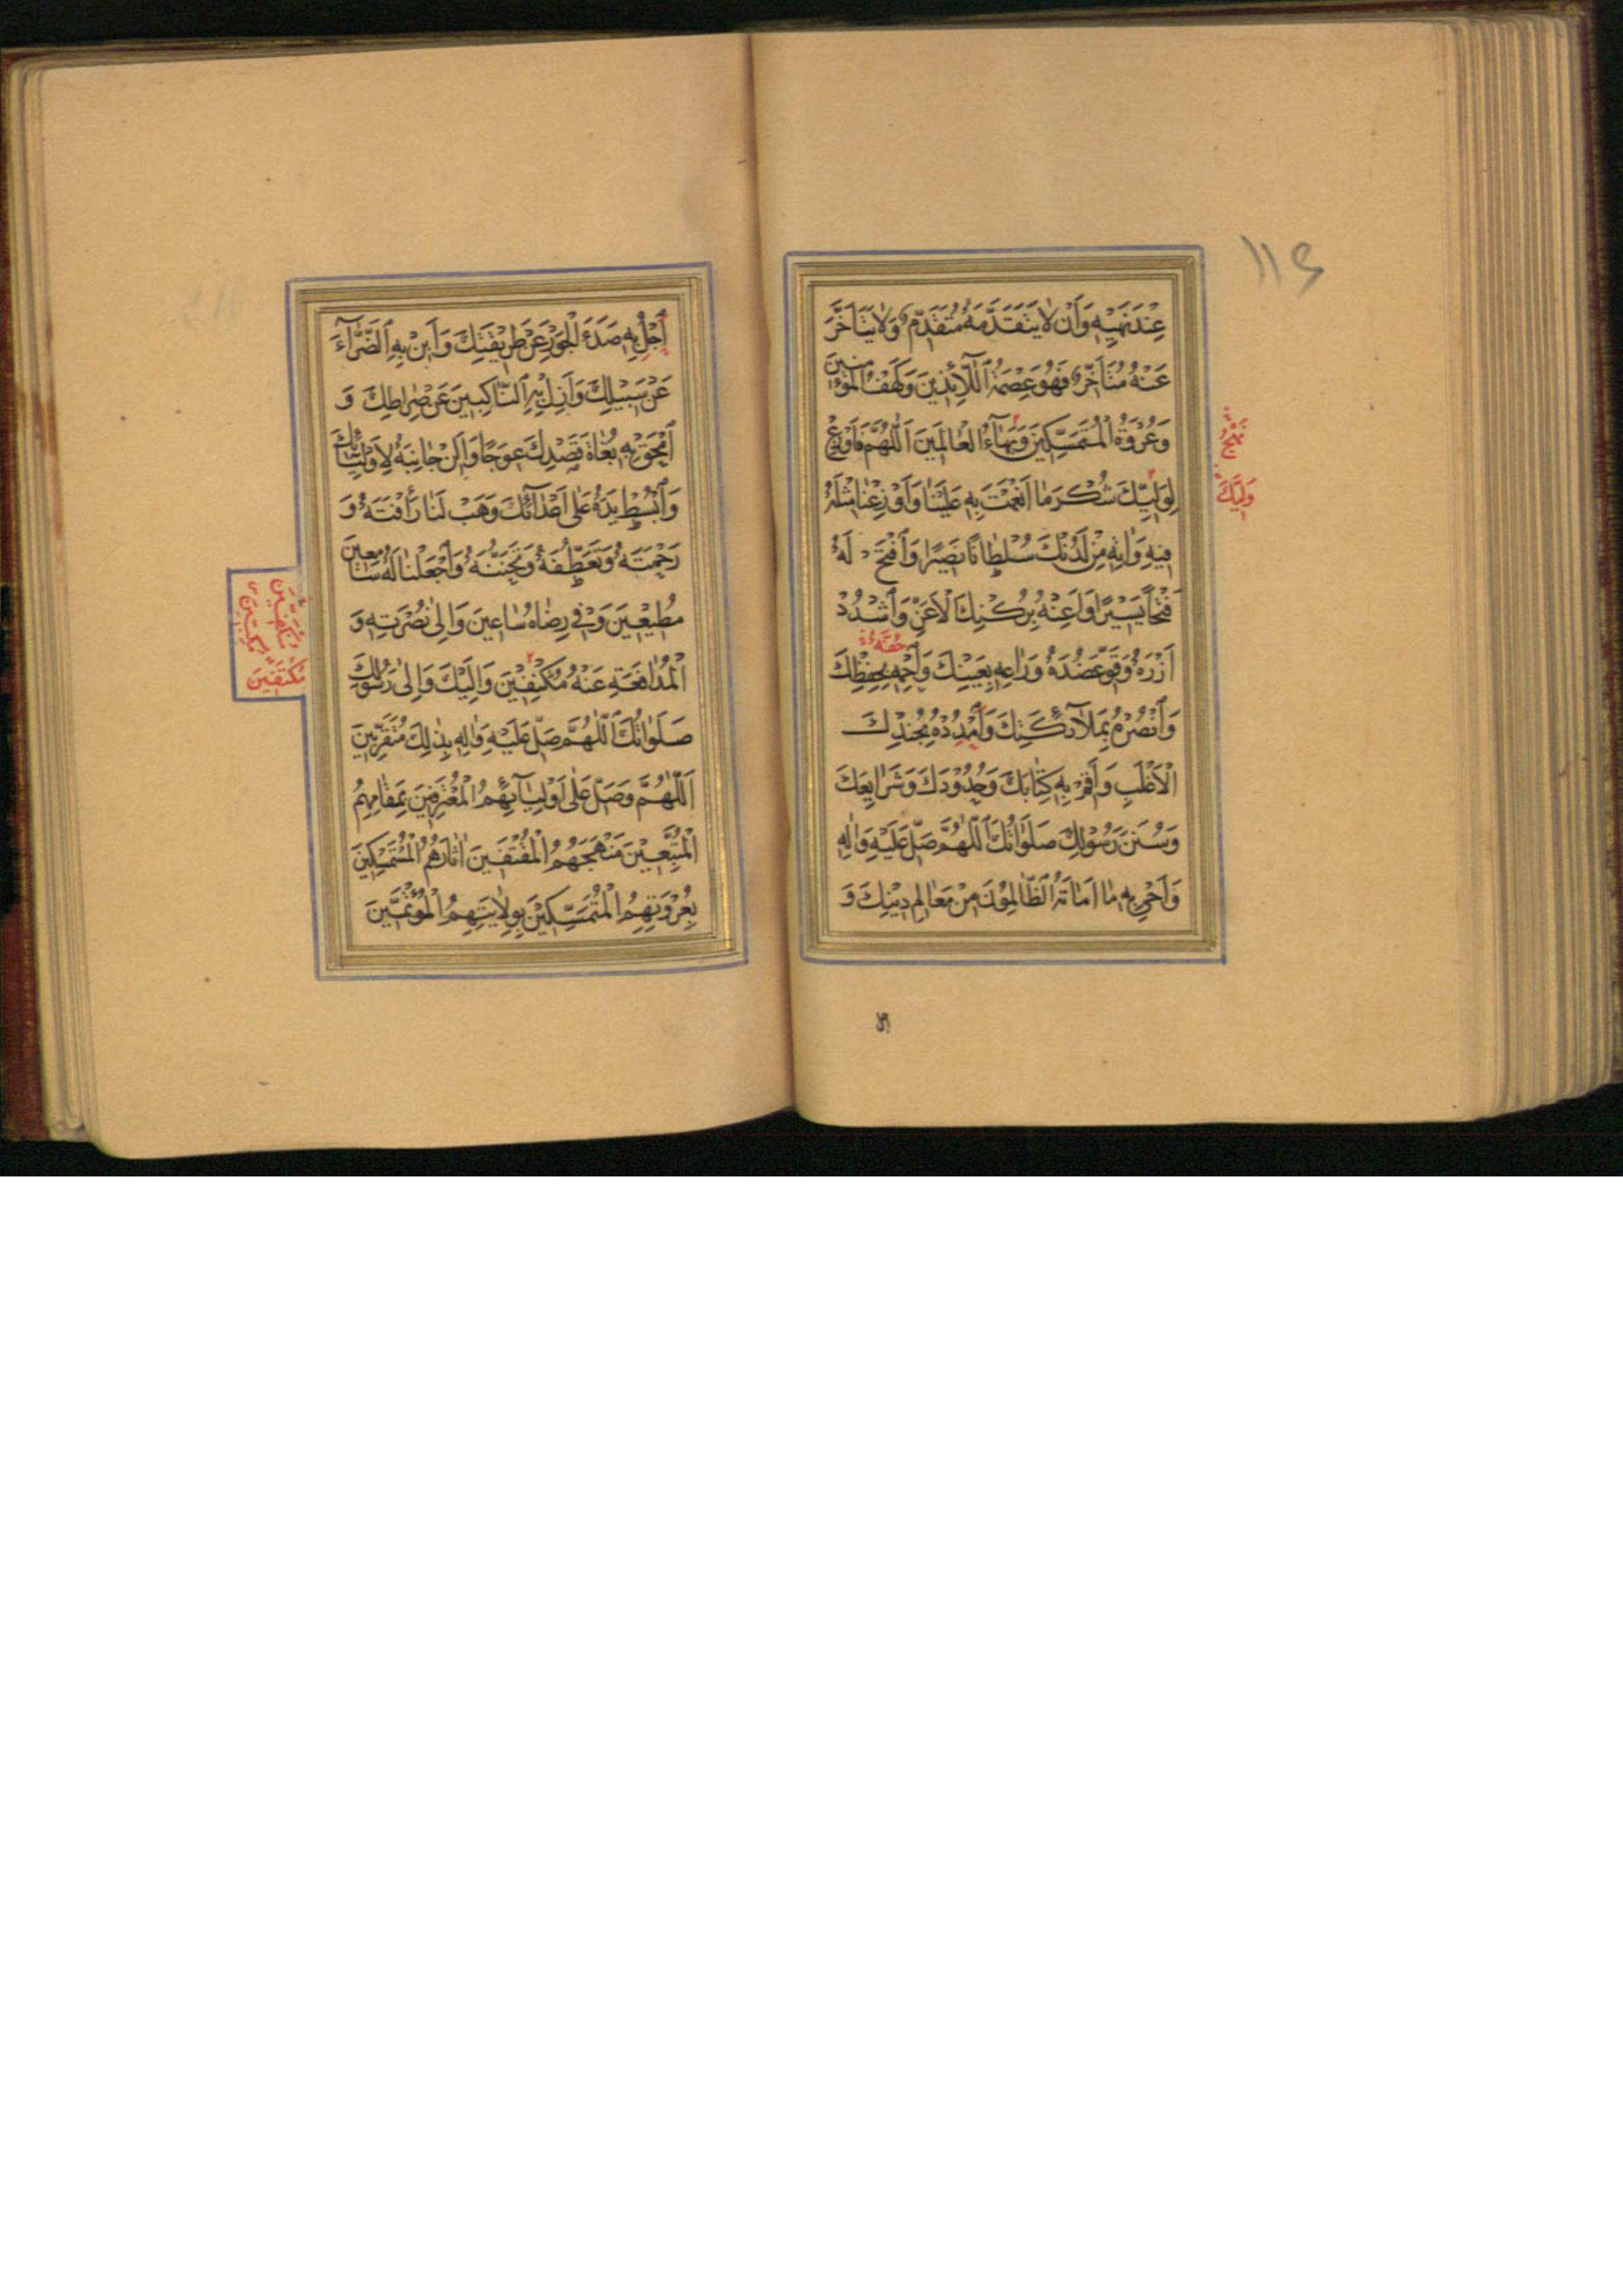 ١١٤
عِنْدَ نَهْيِهِ وَاَنْ لَا يَتَقَدَّمَهُ مُتَقَدِّمٌ وَلَا يَتَاَخَّرَ
عَنْهُ مُتَاَخِّرٌ فَهُوَ عِصْمَةُ اللَّائِذِينَ وَكَهْفُ الْمُؤْمِنِينَ
وَعُرْوَةُ الْمُتَمَسِّكِينَ وَبَهَاءُ الْعَالَمِينَ اَللّٰهُمَّ فَاَوْزِعْ
لِوَلِيِّكَ شُكْرَ مَا اَنْعَمْتَ بِهِ عَلَيْنَا وَاَوْزِعْنَا مِثْلَهُ
فِيهِ وَاٰتِهِ مِنْ لَدُنْكَ سُلْطَانًا نَصِيرًا وَافْتَحْ لَهُ
فَتْحًا يَسِيرًا وَاَعِنْهُ بِرُكْنِكَ الْاَعَزِّ وَاشْدُدْ
اَزْرَهُ وَقَوِّ عَضُدَهُ وَرَاعِهِ بِعَيْنِكَ وَاحْمِهِ بِحِفْظِكَ
وَانْصُرْهُ بِمَلَآئِكَتِكَ وَامْدُدْهُ بِجُنْدِكَ
الْاَغْلَبِ وَاَقِمْ بِهِ كِتَابَكَ وَحُدُودَكَ وَشَرَايِعَكَ
وَسُنَنَ رَسُولِكَ صَلَوَاتُكَ اللّٰهُمَّ صَلِّ عَلَيْهِ وَاٰلِهِ
وَاَحْيِ بِهِ مَا اَمَاتَهُ الظَّالِمُونَ مِنْ مَعَالِمِ دِينِكَ وَ
وَلِيِّكَ
اَجْلُ بِهِ صَدَءَ الْجَوْرِ عَنْ طَرِيقَتِكَ وَاَبِنْ بِهِ الضَّرَّآءَ
عَنْ سَبِيلِكَ وَاَزِلْ بِهِ النَّاكِبِينَ عَنْ صِرَاطِكَ وَ
امْحَقْ بِهِ بُغَاةَ قَصْدِكَ عِوَجًا وَاَلِنْ جَانِبَهُ لِاَوْلِيَائِكَ
وَابْسُطْ يَدَهُ عَلٰى اَعْدَآئِكَ وَهَبْ لَنَا رَأْفَتَهُ وَ
رَحْمَتَهُ وَتَعَطُّفَهُ وَتَحَنُّنَهُ وَاجْعَلْنَا لَهُ سَامِعِينَ
مُطِيعِينَ وَفِي رِضَاهُ سَاعِينَ وَاِلٰى نُصْرَتِهِ وَ
الْمُدَافَعَةِ عَنْهُ مُكْنِفِينَ وَاِلَيْكَ وَاِلٰى رَسُولِكَ
صَلَوَاتُكَ اللّٰهُمَّ صَلِّ عَلَيْهِ وَاٰلِهِ بِذٰلِكَ مُتَقَرِّبِينَ
اَللّٰهُمَّ وَصَلِّ عَلٰى اَوْلِيَآئِهِمُ الْمُعْتَرِفِينَ بِمَقَامِهِمُ
الْمُتَّبِعِينَ مَنْهَجَهُمُ الْمُقْتَفِينَ اٰثَارَهُمُ الْمُسْتَمْسِكِينَ
بِعُرْوَتِهِمُ الْمُتَمَسِّكِينَ بِوِلَايَتِهِمُ الْمُؤْتَمِّينَ